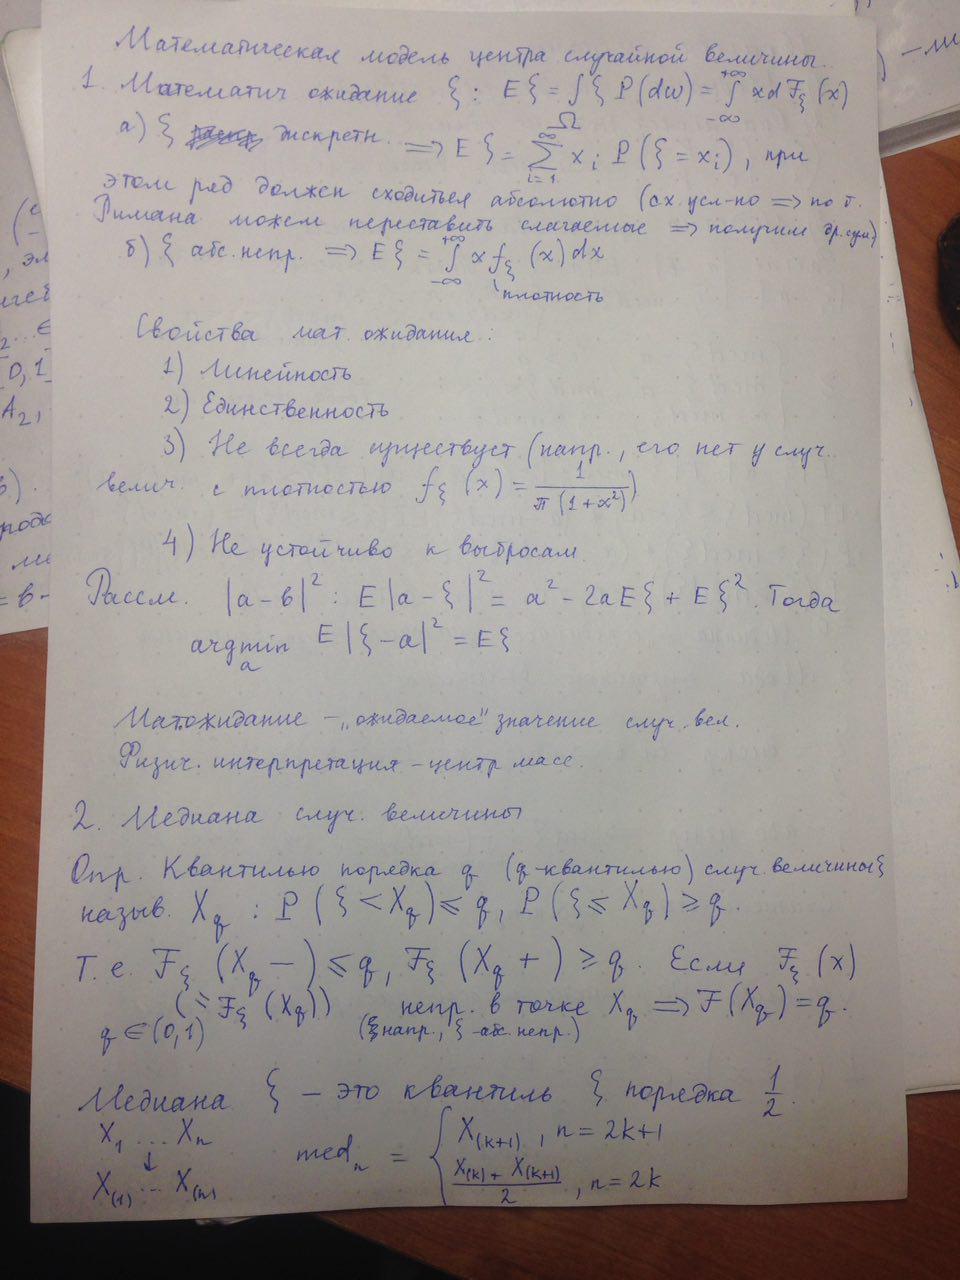 Математическая модель центра случайной величины.
1. Математич ожидание ξ: Eξ = ∫_Ω ξ P(dω) = ∫_{-∞}^{+∞} x d F_ξ(x)
а) ξ дискретн. ⟹ Eξ = ∑_{i=1}^{∞} x_i P(ξ = x_i), при
этом ряд должен сходиться абсолютно (сх. усл-но ⟹ по т.
Римана можем переставить слагаемые ⟹ получим др. сум)
б) ξ абс. непр. ⟹ Eξ = ∫_{-∞}^{+∞} x f_ξ(x) dx
плотность
Свойства мат. ожидания:
1) Линейность
2) Единственность
3) Не всегда существует (напр., его нет у случ.
велич. с плотностью f_ξ(x) = 1/(π(1+x²)))
4) Не устойчиво к выбросам
Рассм. |a-b|²: E|a-ξ|² = a² - 2aEξ + Eξ². Тогда
argmin_a E|ξ-a|² = Eξ
Матожидание – „ожидаемое" значение случ. вел.
Физич. интерпретация – центр масс.
2. Медиана случ. величины
Опр. Квантилью порядка q (q-квантилью) случ. величины ξ
назыв. X_q : P(ξ < X_q) ≤ q, P(ξ ≤ X_q) ≥ q.
Т.е. F_ξ(X_q -) ≤ q, F_ξ(X_q +) ≥ q. Если F_ξ(x)
(= F_ξ(X_q)) непр. в точке X_q ⟹ F(X_q) = q.
q ∈ (0,1) (напр., ξ - абс. непр.)
Медиана ξ – это квантиль ξ порядка 1/2.
X_1 ... X_n
↓
X_(1) ... X_(n)
med_n = { X_(k+1), n = 2k+1
(X_(k) + X_(k+1))/2, n = 2k